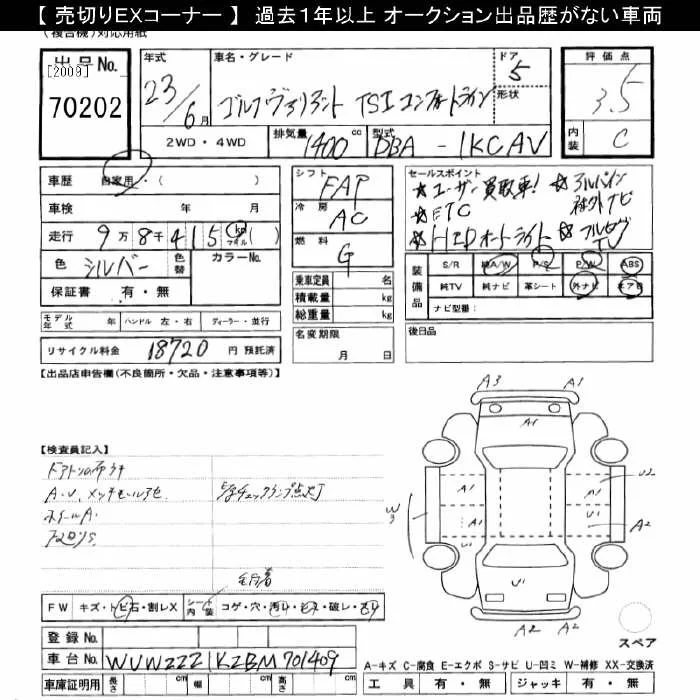 【 売切りEXコーナー 】 過去１年以上 オークション出品歴がない車両
(複合機)対応用紙
出品No.
[2009]
70202
年式
23/6月
車名・グレード
ゴルフヴァリアント TSIコンフォートライン
ドア
5
形状
評価点
3.5
内装
C
2WD・4WD
排気量
1400 cc
型式
DBA - 1KCAV
車歴 自家用・( )
車検 年 月
走行 9万8千415 km マイル ( )
色 シルバー
色替
カラーNo.
保証書 有・無
シフト
FAT
冷房
AC
燃料
G
乗車定員 名
積載量 kg
総重量 kg
名変期限
月 日
セールスポイント
★ユーザー買取車!
★アルパイン
社外ナビ
★ETC
★HIDオートライト
★フルセグ
TV
装備品
S/R 純A/W P/S P/W ABS
純TV 純ナビ 革シート 外ナビ エアB
ナビ型番:
後日品
モデル年式 年 ハンドル 左・右 ディーラー・並行
リサイクル料金 18720 円 預託済
【出品店申告欄(不良箇所・欠品・注意事項等)】
【検査員記入】
A・U、メッキモール
ホイールA.
チェックランプ点灯
FW キズ・トビ石・割レX
シート内装 コゲ・穴・汚レ・破レ
登録No.
車台No. WVWZZZ1KZBM701409
車庫証明用 長さ cm 幅 cm 高さ cm
A3 A1
A1
A1
A1
U2
U1
A2
W3
U1
U1
A2 A2
スペア
A-キズ C-腐食 E-エクボ S-サビ U-凹ミ W-補修 XX-交換済
工具 有・無 ジャッキ 有・無